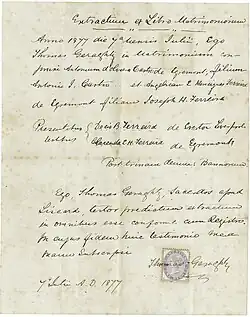 Extractum ex Libro Matrimoniorum
Anno 1877 die 7a mensis Julii, Ego
Thomas Geraghty in Matrimonium con
junxi Antonium d'Alves Castro de Egremont, filium
Antonii J. Castro et Angelinam E. Henriques Ferreira
de Egremont filiam Joseph H. Ferreira
Presentibus B. Ferreira de Liverpool
testibus Clarenda C. H. Ferreira de Egremont
Post trinam Bannorum
Ego Thomas Geraghty, Sacerdos apud
Liscard testor predictum extractum
in omnibus esse conforme cum Registro,
In cujus fidem huic testimonio mea
manu subscripsi
Thomas Geraghty
7a Julii A.D. 1877